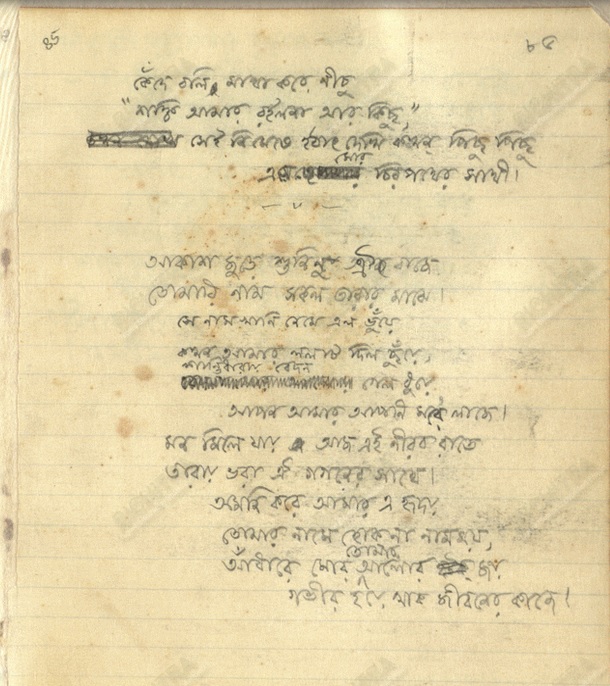 ৮৫
কেঁদে বলি, মাথা করে নীচু
"শক্তি আমার রইলনা আর কিছু,"
সেই নিমেষে হঠাৎ দেখি কখন পিছু পিছু
মোর
চিরপথের সাথী।
আকাশ জুড়ে শুনিনু ঐ বাজে
তোমারি নাম সকল তারার মাঝে।
সে নামখানি নেমে এল ভুঁয়ে
কখন আমার ললাট দিল ছুঁয়ে,
শান্তিধারায় বেদন
গেল ধুয়ে
আপন আমার আপনি মরে লাজে।
মন মিলে যায় আজ এই নীরব রাতে
তারায় ভরা ঐ গগনের সাথে।
অমনি করে আমার এ হৃদয়
তোমার নামে হোক না নামময়,
তোমার
আঁধারে মোর আলোর জয়
গভীর হয়ে থাক জীবনের কাজে।